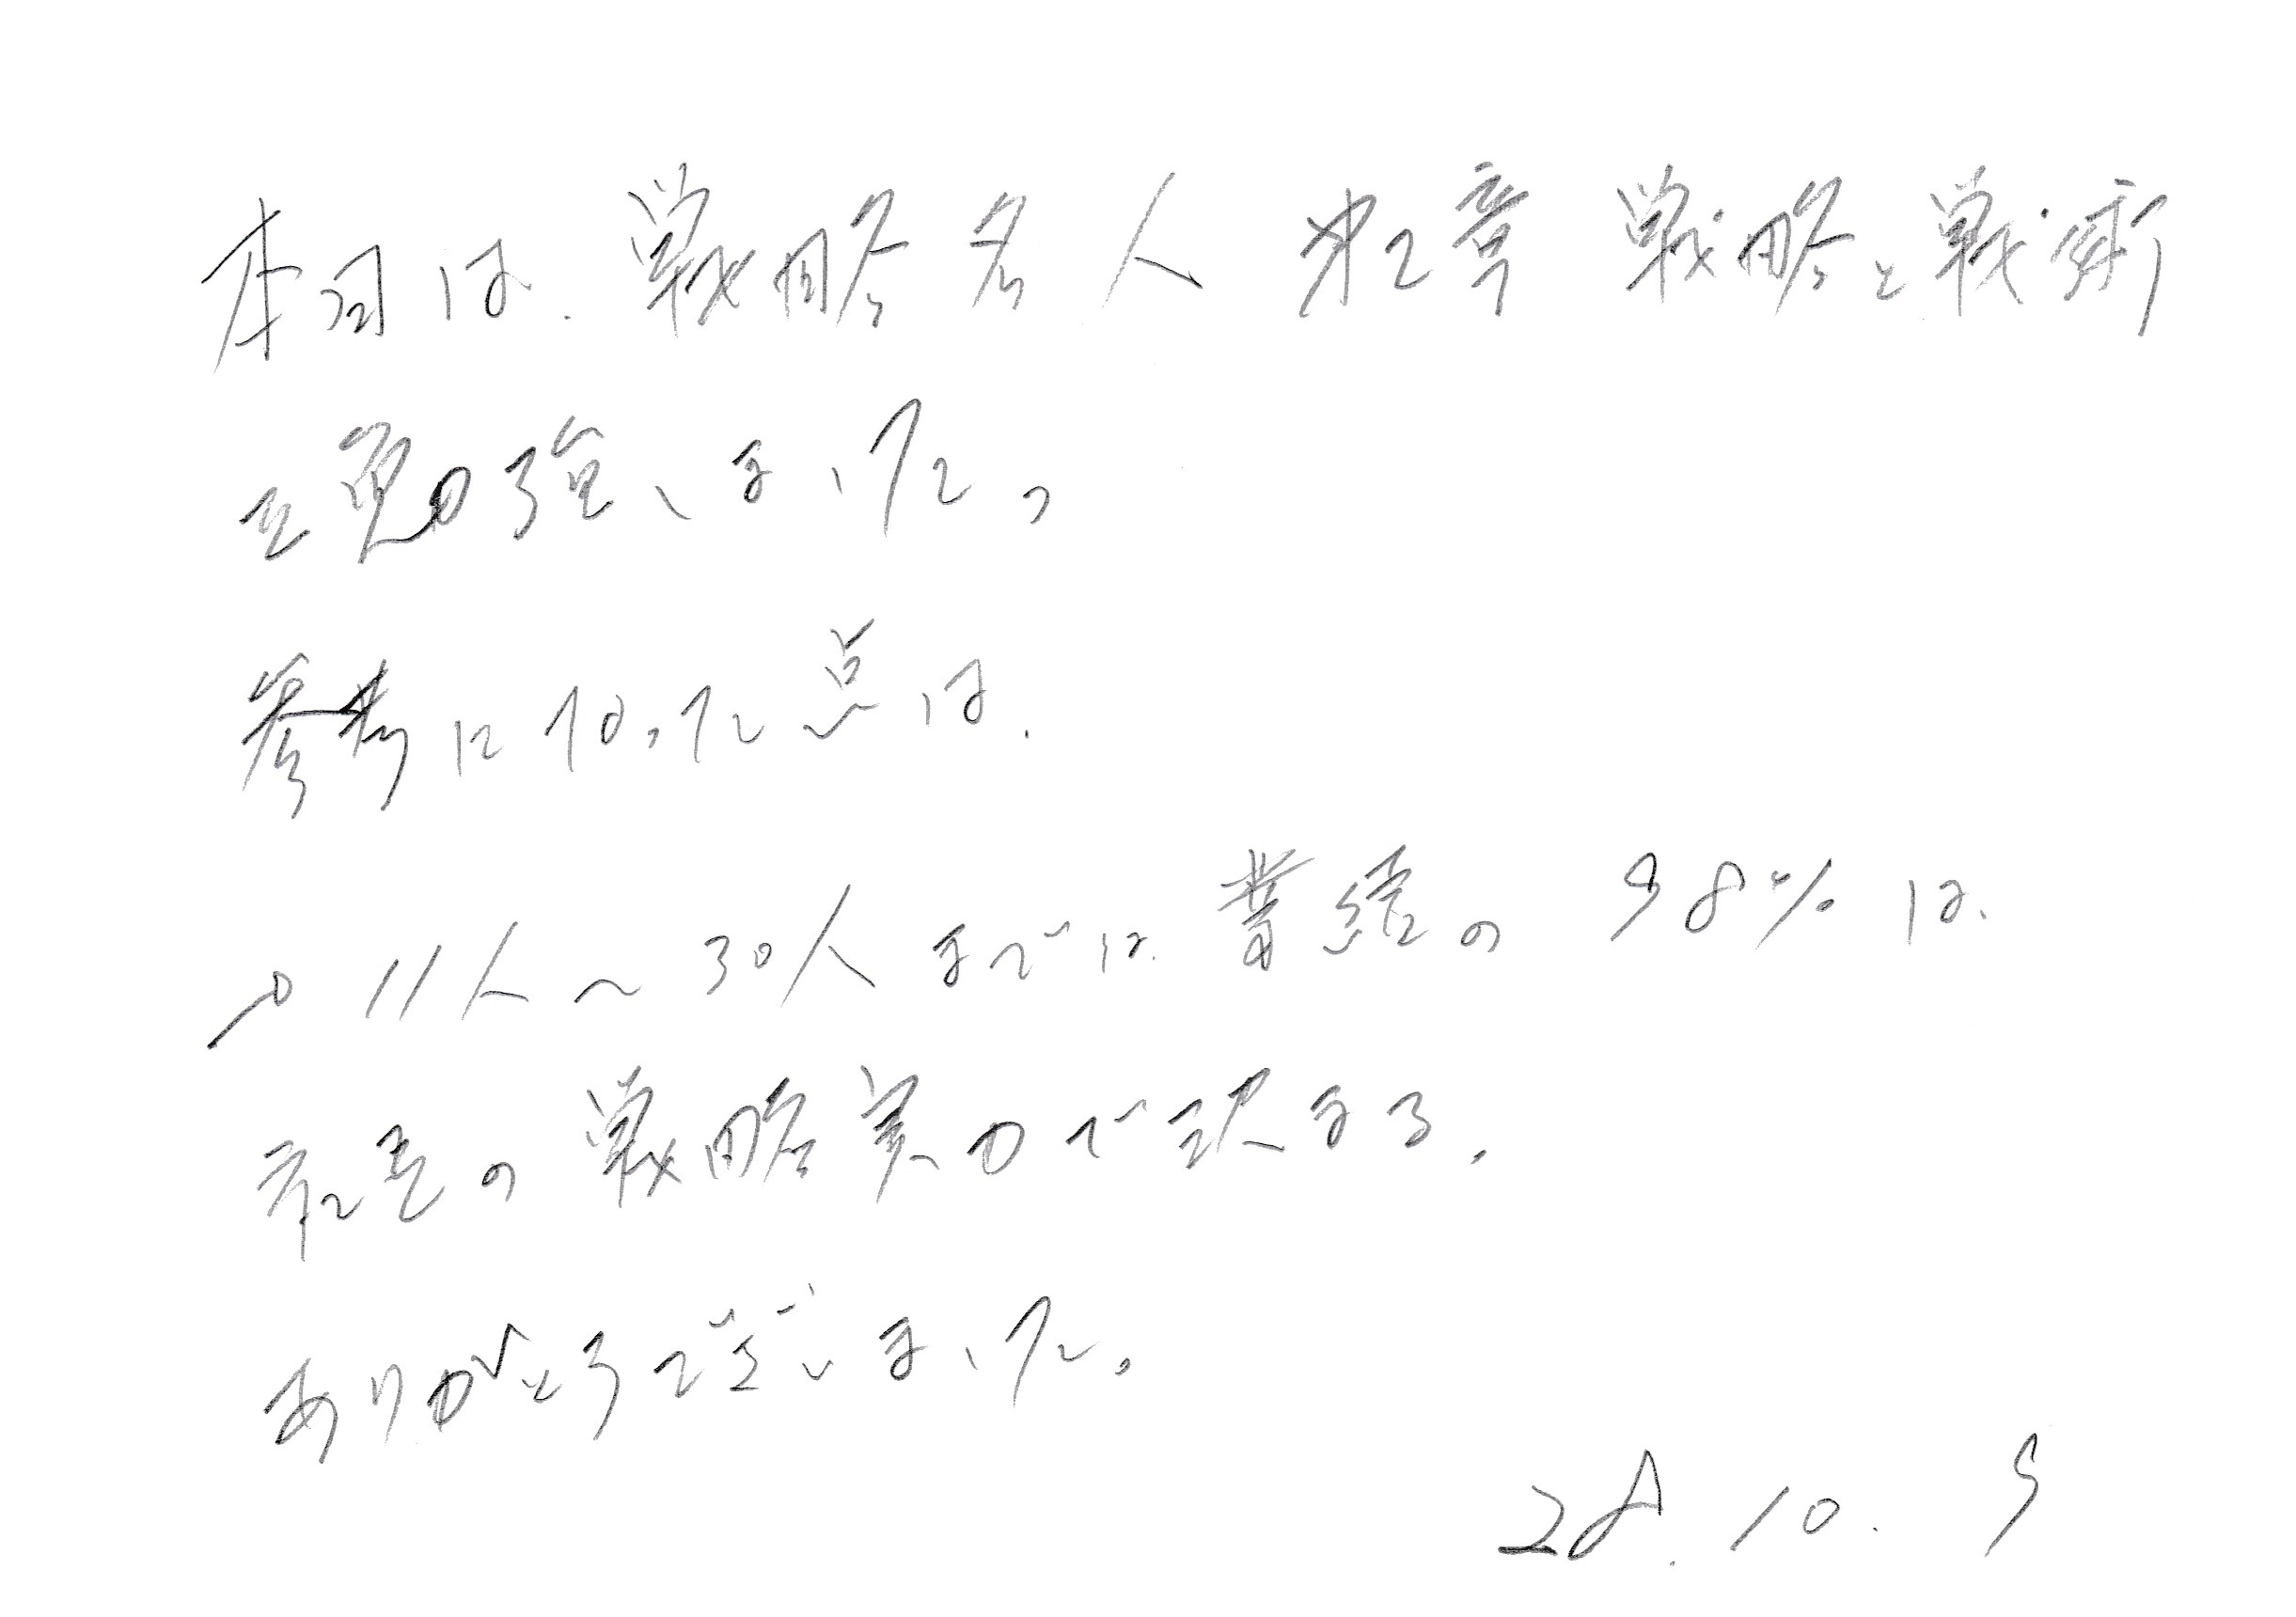 本日は、戦略名人 第2章 戦略と戦術
を勉強しました。
参考になった点は、
○ 11人〜30人までは、業績の 98%は、
社長の戦略実力で決まる。
ありがとうございました。
28. 10. 9